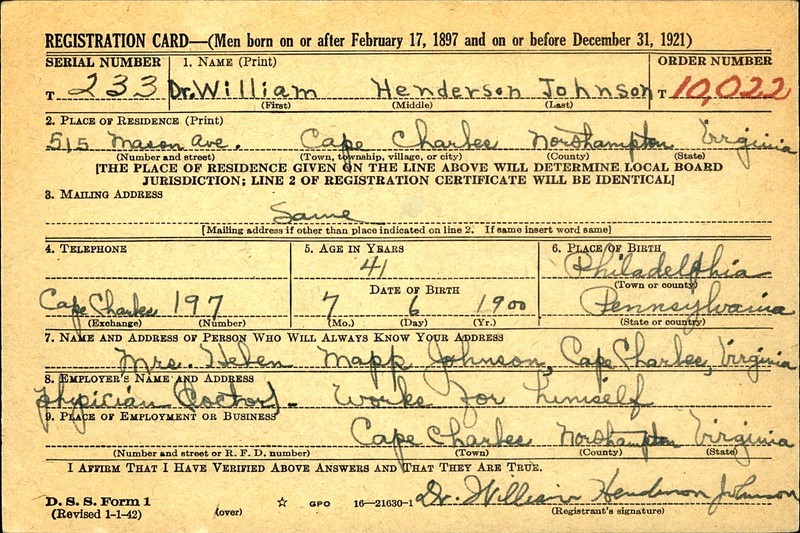 REGISTRATION CARD—(Men born on or after February 17, 1897 and on or before December 31, 1921)
SERIAL NUMBER 1. NAME (Print) ORDER NUMBER
T 233 Dr. William Henderson Johnson T 10,022
(First) (Middle) (Last)
2. PLACE OF RESIDENCE (Print)
515 Mason Ave. Cape Charles Northampton Virginia
(Number and street) (Town, township, village, or city) (County) (State)
[THE PLACE OF RESIDENCE GIVEN ON THE LINE ABOVE WILL DETERMINE LOCAL BOARD
JURISDICTION; LINE 2 OF REGISTRATION CERTIFICATE WILL BE IDENTICAL]
3. MAILING ADDRESS
Same
[Mailing address if other than place indicated on line 2. If same insert word same]
4. TELEPHONE 5. AGE IN YEARS 6. PLACE OF BIRTH
41 Philadelphia
(Town or county)
DATE OF BIRTH
Cape Charles 197 7 6 1900 Pennsylvania
(Exchange) (Number) (Mo.) (Day) (Yr.) (State or country)
7. NAME AND ADDRESS OF PERSON WHO WILL ALWAYS KNOW YOUR ADDRESS
Mrs. Helen Mapp Johnson, Cape Charles, Virginia
8. EMPLOYER'S NAME AND ADDRESS
Physician (Doctor) - Works for himself
9. PLACE OF EMPLOYMENT OR BUSINESS
Cape Charles Northampton Virginia
(Number and street or R. F. D. number) (Town) (County) (State)
I AFFIRM THAT I HAVE VERIFIED ABOVE ANSWERS AND THAT THEY ARE TRUE.
D. S. S. Form 1
(Revised 1-1-42) (over) ☆ GPO 16—21630-1 Dr. William Henderson Johnson
(Registrant's signature)